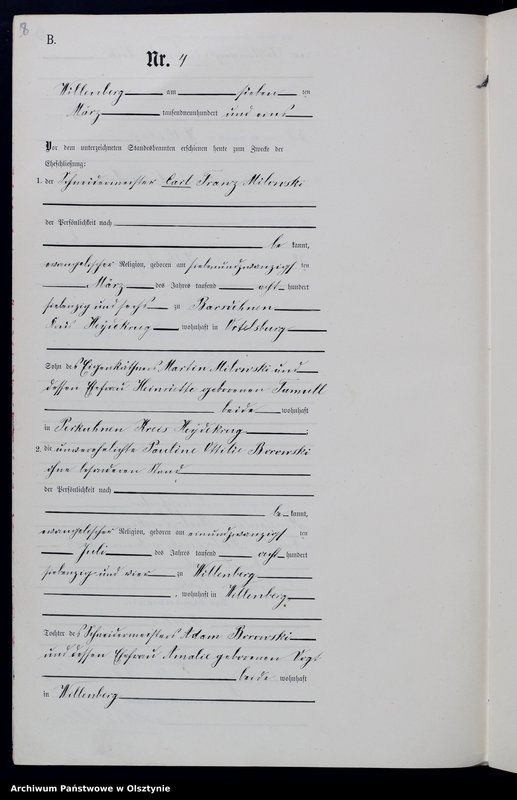 8
B.
Nr. 4
Willenberg am sieben ten
März tausendneunhundert und eins
Vor dem unterzeichneten Standesbeamten erschienen heute zum Zwecke der
Eheschließung:
1. der Schneidermeister Carl Franz Milowski
der Persönlichkeit nach
be kannt,
evangelischer Religion, geboren am siebenundzwanzigs ten
März des Jahres tausend acht hundert
siebenzig und sechs zu
Kreis Heydekrug wohnhaft in Ortelsburg
Sohn des Eigenkäthners Martin Milowski und
dessen Ehefrau Henriette geborenen
beide wohnhaft
in Kreis Heydekrug ;
2. die unverehelichte Pauline Ottilie Borowski
ohne besonderen Stand
der Persönlichkeit nach
be kannt,
evangelischer Religion, geboren am einundzwanzigs ten
Juli des Jahres tausend acht hundert
siebenzig und vier zu Willenberg
, wohnhaft in Willenberg
Tochter des Schneidermeisters Adam Borowski
und dessen Ehefrau Amalie geborenen Vogt
beide wohnhaft
in Willenberg
Archiwum Państwowe w Olsztynie